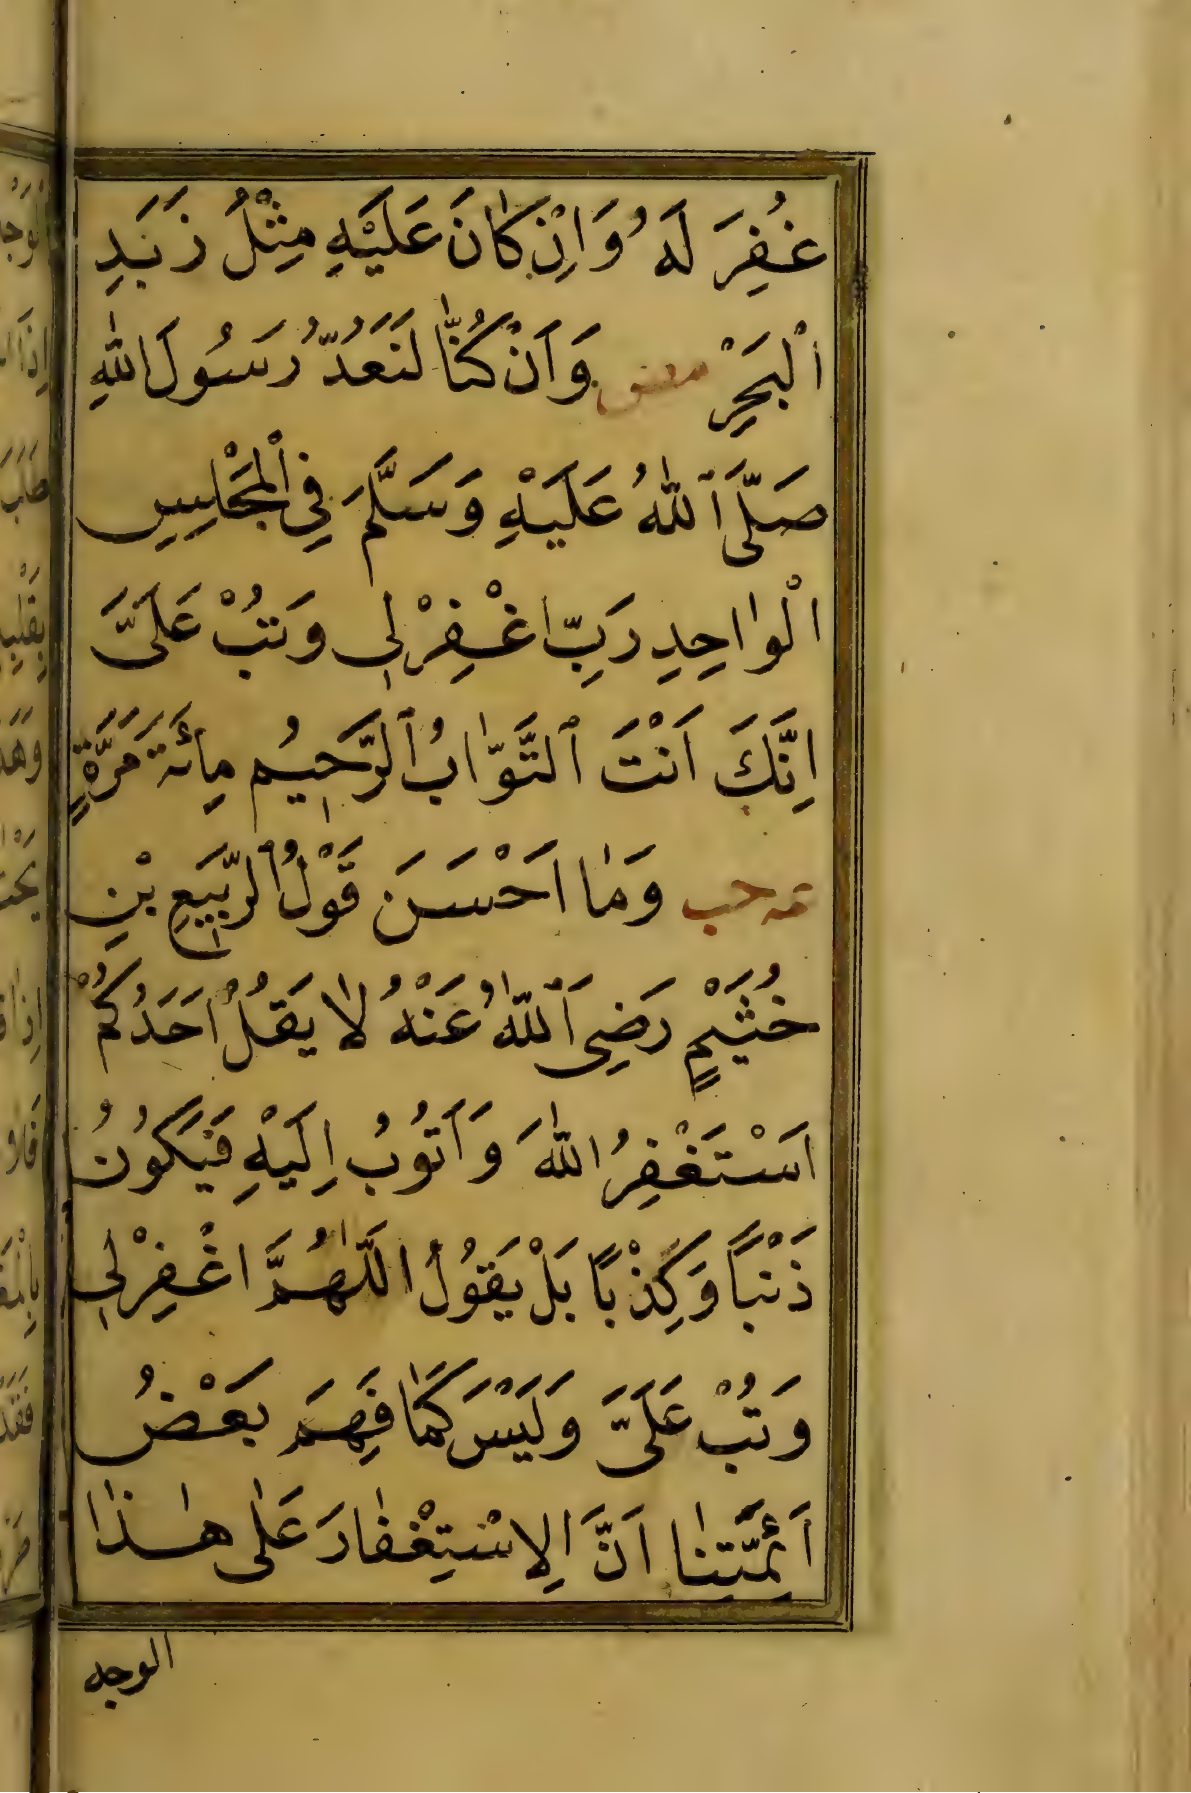 غُفِرَ لَهُ وَاِنْ كَانَ عَلَيْهِ مِثْلُ زَبَدِ
اْلبَحْرِ مص وَاَنْ كُنَّا لَنَعُدُّ رَسُولَ اللّٰهِ
صَلَّى ٱللّٰهُ عَلَيْهِ وَسَلَّمَ فِى الْمَجْلِسِ
الْوَاحِدِ رَبِّ اغْفِرْلِى وَتُبْ عَلَىَّ
اِنَّكَ اَنْتَ ٱلتَّوَّابُ ٱلرَّحِيمُ مِائَةَ مَرَّةٍ
عه حب وَمَا اَحْسَنَ قَوْلُ ٱلرَّبِيعِ بْنِ
خُثَيْمٍ رَضِىَ ٱللّٰهُ عَنْهُ لَا يَقُلْ اَحَدُكُمْ
اَسْتَغْفِرُ اللّٰهَ وَاَتُوبُ اِلَيْهِ فَيَكُونُ
ذَنْبًا وَكِذْبًا بَلْ يَقُولُ اللّٰهُمَّ اغْفِرْلِى
وَتُبْ عَلَىَّ وَلَيْسَ كَمَا فَهِمَ بَعْضُ
اَئِمَّتِنَا اَنَّ الِاسْتِغْفَارَ عَلٰى هٰذَا
الوجه